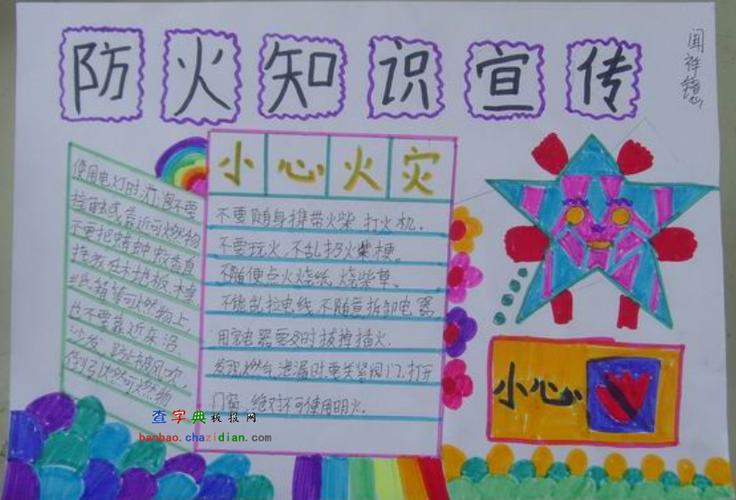 防火知识宣传
闻祥
小心火灾
使用电灯时灯泡不要
接触或靠近可燃物
不要把蚊香直
接放在木地板
纸箱等可燃物上,
也不要靠近床沿
沙发 防止被风吹
倒引燃可燃物
不要随身携带火柴 打火机.
不要玩火、不乱扔火柴梗.
不随便点火烧纸、烧柴草.
不能乱拉电线、不随意拆卸电器
用完电器要及时拔掉插火.
发现燃气泄漏时要关紧阀门,打开
门窗, 绝对不可使用明火.
小心
查字典板报网
banbao.chazidian.com